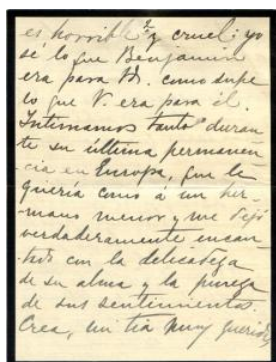 es horrible y cruel: yo
sé lo que Benjamin
era para Vd. como supe
lo que V. era para él.
Intimamos tanto duran-
te su última permanen-
cia en Europa, que le
quería como á un her-
mano menor y me dejó
verdaderamente encan-
tado con la delicadeza
de su alma y la pureza
de sus sentimientos.
Crea, mi tia muy querida,